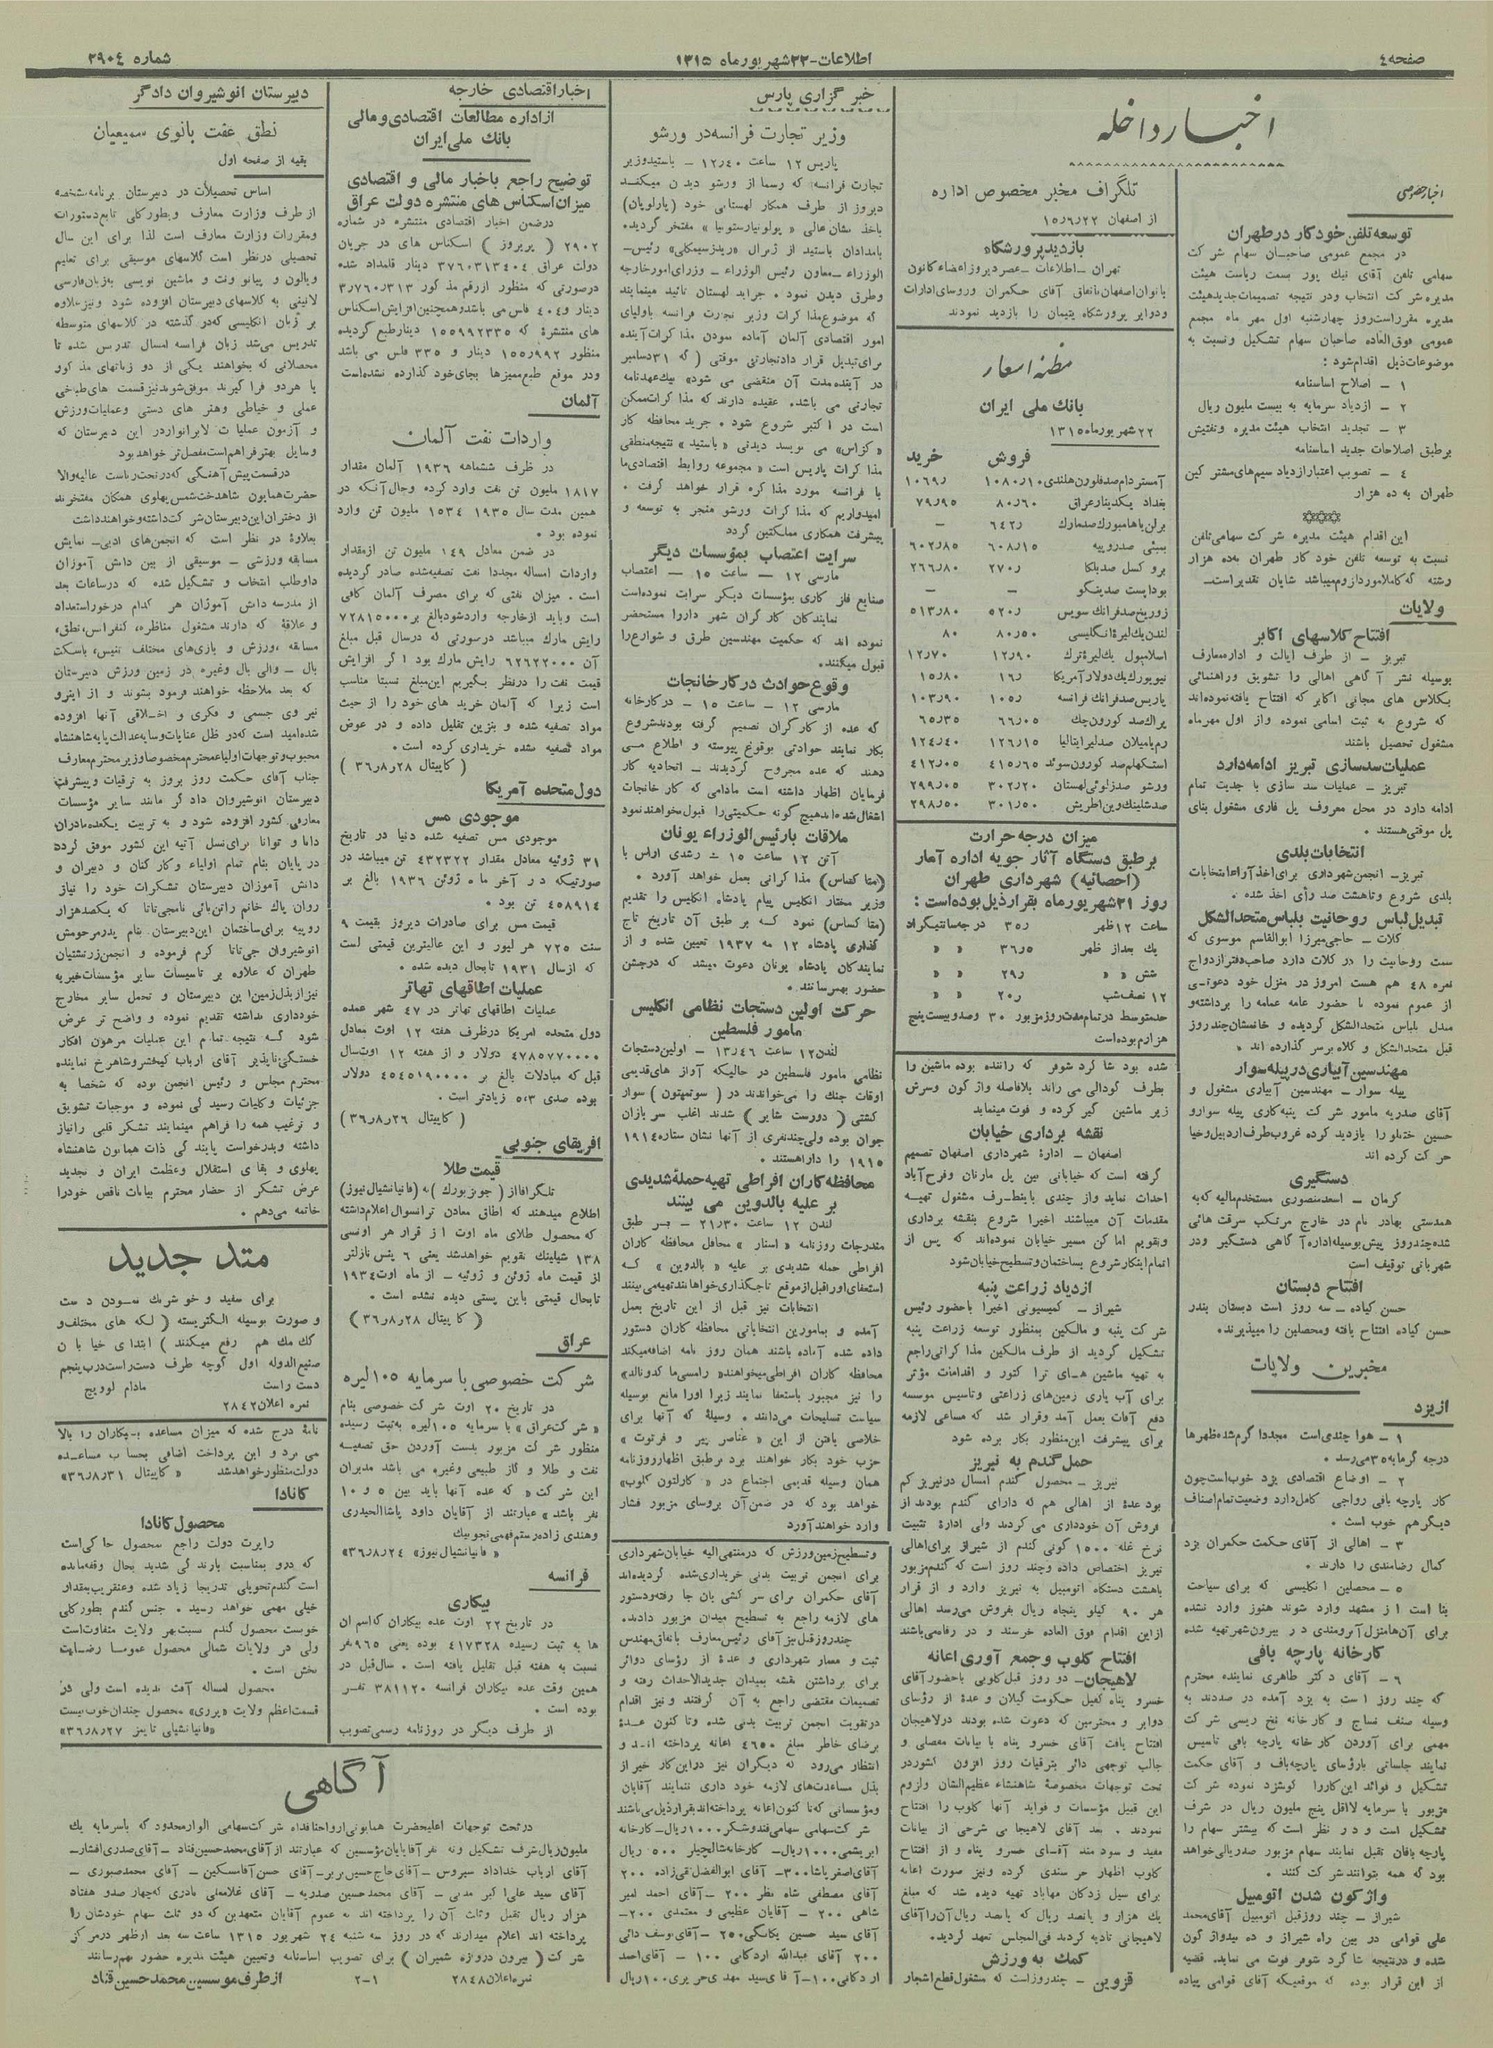 صفحه ٤
اطلاعات-۲۲ شهریورماه ۱۳۱۵
شماره ۲۹۰٤
اخبار داخله
اخبار خصوصی
توسعه تلفن خودکار در طهران
در مجمع عمومی صاحبان سهام شرکت
سهامی تلفن آقای نیک پور بسمت ریاست هیئت
مدیره شرکت انتخاب ودر نتیجه تصمیمات جدید هیئت
مدیره مقرراست روز چهارشنبه اول مهر ماه مجمع
عمومی فوق العاده صاحبان سهام تشکیل ونسبت به
موضوعات ذیل اقدام شود:
۱ - اصلاح اساسنامه
۲ - ازدیاد سرمایه به بیست ملیون ریال
۳ - تجدید انتخاب هیئت مدیره وتفتیش
برطبق اصلاحات جدید اساسنامه
٤ - تصویب اعتبار ازدیاد سیم های مشترکین
طهران به ده هزار
این اقدام هیئت مدیره شرکت سهامی تلفن
نسبت به توسعه تلفن خود کار طهران بده هزار
رشته که کاملا مورد لزوم میباشد شایان تقدیر است-
ولایات
افتتاح کلاسهای اکابر
تبریز - از طرف ایالت و اداره معارف
بوسیله نشر آگاهی اهالی را تشویق وراهنمائی
بکلاس های مجانی اکابر که افتتاح یافته نموده اند
که شروع به ثبت اسامی نموده واز اول مهرماه
مشغول تحصیل باشند
عملیات سدسازی تبریز ادامه دارد
تبریز - عملیات سد سازی با جدیت تمام
ادامه دارد در محل معروف پل قاری مشغول بنای
پل موقتی هستند .
انتخابات بلدی
تبریز- انجمن شهرداری برای اخذ آراء انتخابات
بلدی شروع وتاهشت صد رأی اخذ شده .
تبدیل لباس روحانیت بلباس متحدالشکل
کلات - حاجی میرزا ابوالقاسم موسوی که
سمت روحانیت را در کلات دارد صاحب دفتر ازدواج
نمره ٤۸ هم هست امروز در منزل خود دعوتی از
عموم نموده با حضور عامه عمامه را برداشته و
مبدل بلباس متحدالشکل گردیده و خانمشان چند روز
قبل متحدالشکل و کلاه برسر گذارده اند .
مهندسین آبیاری در پیله سوار
پیله سوار - مهندسین آبیاری مشغول و
آقای صدریه مامور شرکت پنبه کاری پیله سوار و
حسین ختنلو را بازدید کرده غروب طرف اردبیل وخیا
حرکت کرده اند
دستگیری
کرمان - اسعد منصوری مستخدم مالیه که به
همدستی بهادر نام در خارج مرتکب سرقت هائی
شده چند روز پیش بوسیله اداره آگاهی دستگیر ودر
شهربانی توقیف است
افتتاح دبستان
حسن کیاده - سه روز است دبستان بندر
حسن کیاده افتتاح یافته ومحصلین را میپذیرند.
مخبرین ولایات
از یزد
۱ - هوا چندی است مجددا گرم شده ظهرها
درجه گرما به ۳۵ می رسد .
۲ - اوضاع اقتصادی یزد خوب است چون
کار پارچه بافی رواجی کامل دارد وضعیت تمام اصناف
دیگر هم خوب است .
۳ - اهالی از آقای حکمت حکمران یزد
کمال رضامندی را دارند .
۵ - محصلین انگلیسی که برای سیاحت
بنا است از مشهد وارد شوند هنوز وارد نشده
برای آن ها منزل آبرومندی در بیرون شهر تهیه شده
کارخانه پارچه بافی
۶ - آقای دکتر طاهری نماینده محترم
که چند روز است به یزد آمده در صددند به
وسیله صنف نساج و کارخانه نخ ریسی شرکت
مهمی برای آوردن کارخانه پارچه بافی تاسیس
نمایند جلساتی با رؤسای پارچه باف و آقای حکمت
تشکیل و فوائد این کار را گوشزد نموده شرکت
مزبور با سرمایه لااقل پنج ملیون ریال در شرف
تشکیل است و در نظر است که بیشتر سهام را
پارچه بافان تقبل نمایند سهام مزبور صد ریالی خواهد
بود که همه بتوانند شرکت کنند .
واژگون شدن اتومبیل
شیراز - چند روز قبل اتومبیل آقای محمد
علی قوامی در بین راه شیراز و ده بید واژگون
شده و در نتیجه شاگرد شوفر فوت می نماید. قضیه
از این قرار بوده که موقعیکه آقای قوامی پیاده
تلگراف مخبر مخصوص اداره
از اصفهان ۱۵٫۶٫۲۲
بازدید پرورشگاه
تهران -اطلاعات -عصر دیروز اعضاء کانون
بانوان اصفهان باتفاق آقای حکمران وروسای ادارات
ودوایر پرورشگاه یتیمان را بازدید نمودند
مظنه اسعار
بانك ملی ایران
۲۲ شهریورماه ۱۳۱۵
فروش خرید
آمستردام صدفلورن هلندی ۱۰۸۰٫۱۰ ۱۰۶۹٫
بغداد یکدینار عراق ۸۰٫۶۰ ۷۹٫۹۵
برلن یا هامبورک صدمارك ۶٤۲٫ -
بمبئی صدروپیه ۶۰۸٫۱۵ ۶۰۲٫۸۵
بروکسل صدبلکا ۲۷۰٫ ۲۶۶٫۸۰
بوداپست صدپنگو - -
زوریخ صدفرانك سویس ۵۲۰٫ ۵۱۳٫۸۰
لندن یك لیرۀ انگلیسی ۸۰٫۵۰ ۸۰
اسلامبول یك لیرۀ ترك ۱۲٫۹۰ ۱۲٫۷۰
نیویورك یك دولار آمریکا ۱۶٫ ۱۵٫۸۰
پاریس صدفرانك فرانسه ۱۰۵٫ ۱۰۳٫۹۰
پراك صدکورون چك ۶۶٫۰۵ ۶۵٫۳۵
رم یا میلان صدلیر ایتالیا ۱۲۶٫۱۵ ۱۲٤٫٤۰
استکهلم صد کورون سوئد ٤۱۵٫۶۵ ٤۱۲٫۰۵
ورشو صدزلوتی لهستان ۳۰۲٫۲۰ ۲۹۹٫۰۵
صدشلینك وین اطریش ۳۰۱٫۵۰ ۲۹۸٫۵۰
میزان درجه حرارت
برطبق دستگاه آثار جویه اداره آمار
(احصائیه) شهرداری طهران
روز ۲۱ شهریورماه بقرار ذیل بوده است :
ساعت ۱۲ ظهر ۳۵٫ درجه سانتیگراد
یك بعداز ظهر ۳۶٫۵ « «
شش « « ۲۹٫ « «
۱۲ نصف شب ۲۰٫ « «
حد متوسط در تمام مدت روز مزبور ۳۰ وصد و بیست پنج
هزارم بوده است
شده بود شاگرد شوفر که راننده بوده ماشین را
بطرف گودالی می راند بلافاصله واژگون وسرش
زیر ماشین گیر کرده و فوت مینماید
نقشه برداری خیابان
اصفهان - ادارۀ شهرداری اصفهان تصمیم
گرفته است که خیابانی بین پل مارنان وفرح آباد
احداث نماید واز چندی باینطرف مشغول تهیه
مقدمات آن میباشند اخیرا شروع بنقشه برداری
وتقویم اماکن مسیر خیابان نموده اند که پس از
اتمام اینکار شروع بساختمان وتسطیح خیابان شود
ازدیاد زراعت پنبه
شیراز - کمیسیونی اخیرا با حضور رئیس
شرکت پنبه و مالکین بمنظور توسعه زراعت پنبه
تشکیل گردید از طرف مالکین مذاکراتی راجع
به تهیه ماشین های تراکتور و اقدامات مؤثر
برای آب یاری زمین های زراعتی وتاسیس موسسه
دفع آفات بعمل آمد وقرار شد که مساعی لازمه
برای پیشرفت این منظور بکار برده شود
حمل گندم به نیریز
نیریز - محصول گندم امسال در نیریز کم
بود عدۀ از اهالی هم که دارای گندم بودند از
فروش آن خودداری می کردند ولی ادارۀ تثبیت
نرخ غله ۱۵۰۰ گونی گندم از شیراز برای اهالی
نیریز اختصاص داده وچند روز است که گندم مزبور
باهشت دستگاه اتومبیل به نیریز وارد و از قرار
هر ۹۰ کیلو پنجاه ریال بفروش می رسد اهالی
از این اقدام فوق العاده خرسند و در رفاه می باشند
افتتاح کلوپ وجمع آوری اعانه
لاهیجان- دو روز قبل کلوپی با حضور آقای
خسرو پناه کفیل حکومت گیلان و عدۀ از رؤسای
دوایر و محترمین که دعوت شده بودند در لاهیجان
افتتاح یافت آقای خسرو پناه با بیانات مفصلی و
جالب توجهی دائر بترقیات روز افزون کشور در
تحت توجهات مخصوصۀ شاهنشاه عظیم الشان ولزوم
این قبیل مؤسسات و فواید آنها کلوب را افتتاح
نمودند . بعد آقای لاهیجانی شرحی از بیانات
مفید و سودمند آقای خسرو پناه و از افتتاح
کلوب اظهار خرسندی کرده ونیز صورت اعانه
برای سیل زدکان مهاباد تهیه دیده شد که مبلغ
یك هزار و پانصد ریال که پانصد ریال آن را آقای
لاهیجانی تادیه کردند فی المجلس تعهد گردید.
کمك به ورزش
قزوین - چند روز است که مشغول قطع اشجار
خبرگزاری پارس
وزیر تجارت فرانسه در ورشو
پاریس ۱۲ ساعت ۱۲٫٤۰ - باستید وزیر
تجارت فرانسه که رسما از ورشو دیدن میکند
دیروز از طرف همکار لهستانی خود (پارلویان)
باخذ نشان عالی « پولونیارستوتیا » مفتخر گردید.
بامدادان باستید از ژنرال «ریدزسیمکلی» رئیس-
الوزراء -معاون رئیس الوزراء - وزرای امور خارجه
وطرق دیدن نمود . جراید لهستان تائید مینمایند
که موضوع مذاکرات وزیر تجارت فرانسه باولیای
امور اقتصادی آلمان آماده نمودن مذاکرات آینده
برای تبدیل قرارداد تجارتی موقتی ( که ۳۱ دسامبر
در آینده مدت آن منقضی می شود» بیك عهدنامه
تجارتی می باشد. عقیده دارند که مذاکرات ممکن
است در اکتبر شروع شود . جرید محافظه کار
« کزاس» می نویسد دیدنی « باستید » نتیجه منطقی
مذاکرات پاریس است « مجموعه روابط اقتصادی ما
با فرانسه مورد مذاکره قرار خواهد گرفت .
امیدواریم که مذاکرات ورشو منجر به توسعه و
پیشرفت همکاری مملکتین گردد
سرایت اعتصاب بمؤسسات دیگر
مارسی ۱۲ - ساعت ۱۵ - اعتصاب
صنایع فلز کاری بمؤسسات دیگر سرایت نموده است
نمایندکان کارگران شهر داروا مستحضر
نموده اند که حکمیت مهندسین طرق و شوارع را
قبول میکنند.
وقوع حوادث در کارخانجات
مارسی ۱۲ - ساعت ۱۵ - در کارخانه
که عده از کارگران تصمیم گرفته بودند شروع
بکار نمایند حوادثی بوقوع پیوسته و اطلاع می
دهند که عده مجروح گردیدند - اتحادیه کار
فرمایان اظهار داشته است مادامی که کارخانجات
اشغال شده اند هیچ گونه حکمیتی را قبول نخواهند نمود
ملاقات با رئیس الوزراء یونان
آتن ۱۲ ساعت ۱۵
(متاکساس) مذاکراتی بعمل خواهد آورد .
وزیر مختار انگلیس پیام پادشاه انگلیس را تقدیم
(متاکساس) نمود که بر طبق آن تاریخ تاج
گذاری پادشاه ۱۲ مه ۱۹۳۷ تعیین شده و از
نمایندکان پادشاه یونان دعوت میشد که در جشن
حضور بهمرسانند .
حرکت اولین دستجات نظامی انگلیس
مامور فلسطین
لندن ۱۲ ساعت ۱۳٫٤۶ - اولین دستجات
نظامی مامور فلسطین در حالیکه آواز های قدیمی
اوقات جنك را می خواندند در ( سوتمپتون ) سوار
کشتی شدند اغلب سربازان
جوان بوده ولی چند نفری از آنها نشان ستاره ۱۹۱٤
۱۹۱۵ را داراهستند .
محافظه کاران افراطی تهیه حملۀ شدیدی
بر علیه بالدوین می بینند
لندن ۱۲ ساعت ۲۱٫۳۰ - بر طبق
مندرجات روزنامه « استار » محافل محافظه کاران
افراطی حمله شدیدی بر علیه « بالدوین » که
استعفای او را قبل از موقع تاجگذاری خواهانند تهیه می بینند
انتخابات نیز قبل از این تاریخ بعمل
آمده و بمامورین انتخاباتی محافظه کاران دستور
داده شده آماده باشند همان روز نامه اضافه میکند
محافظه کاران افراطی میخواهند « رامسی ما کدونالد»
را نیز مجبور باستعفا نمایند زیرا اورا مانع بوسیله
سیاست تسلیحات می دانند . وسیلۀ که آنها برای
خلاصی یافتن از این « عناصر پیر و فرتوت »
حزب خود بکار خواهند برد برطبق اظهار روزنامه
همان وسیله قدیمی اجتماع در « کارلتون کلوب»
خواهد بود که در ضمن آن بروسای مزبور فشار
وارد خواهند آورد
وتسطیح زمین ورزش که در منتهی الیه خیابان شهرداری
برای انجمن تربیت بدنی خریداری شده گردیده اند
آقای حکمران برای سرکشی بان جا رفته ودستور
های لازمه راجع به تسطیح میدان مزبور دادند.
چندروز قبل نیز آقای رئیس معارف باتفاق مهندس
ثبت و معمار شهرداری و عدۀ از رؤسای دوائر
برای برداشتن نقشه بمیدان جدیدالاحداث رفته و
تصمیمات مقتضی راجع به آن گرفتند و نیز اقدام
در تقویت انجمن تربیت بدنی شده وتاکنون عدۀ
برضای خاطر مبلغ ٤۶۵۰ اعانه پرداخته اند و
انتظار می رود که دیگران نیز در این کار خیر از
بذل مساعدت های لازمه خود داری ننمایند آقایان
ومؤسساتی که تاکنون اعانه پرداخته اند بقرار ذیل می باشند
شرکت سهامی سهامی قندوشکر ۱۰۰۰ ریال -کارخانه
ابریشمی ۱۰۰۰ ریال- کارخانه شالچیلر ۵۰۰ ریال
آقای اصغر پاشا ۳۰۰- آقای ابوالفضل تقی زاده ۲۰۰
آقای مصطفی شاه نظر ۲۰۰ -آقای احمد امیر
شاهی ۲۰۰ - آقایان عظیمی و معتمدی ۲۰۰-
آقای سید حسین یکانگی ۲۵۰ -آقای یوسف دائی
۲۰۰ آقای عبدالله اردکانی ۱۰۰ -آقای احمد
اردکانی ۱۰۰- آقای سید مهدی حریری ۱۰۰ ریال
اخبار اقتصادی خارجه
از اداره مطالعات اقتصادی و مالی
بانك ملی ایران
توضیح راجع باخبار مالی و اقتصادی
میزان اسکناس های منتشره دولت عراق
در ضمن اخبار اقتصادی منتشره در شماره
۲۹۰۲ ( پریروز ) اسکناس های در جریان
دولت عراق ۳۷۶۰۳۱۳٤۰٤ دینار قلمداد شده
درصورتی که منظور از رقم مذکور ۳٫۷۶۰٫۳۱۳
دینار و ٤۰٤ فلس می باشد وهمچنین افزایش اسکناس
های منتشرۀ که ۱۵۵۹۹۲۳۳۵ دینار طبع گردیده
منظور ۱۵۵٫۹۹۲ دینار و ۳۳۵ فلس می باشد
ودر موقع طبع ممیزها بجای خود گذارده نشده است
آلمان
واردات نفت آلمان
در ظرف ششماهه ۱۹۳۶ آلمان مقدار
۱۸۱۷ ملیون تن نفت وارد کرده وحال آنکه در
همین مدت سال ۱۹۳۵ ۱۵۳٤ ملیون تن وارد
نموده بود .
در ضمن معادل ۱٤۹ ملیون تن از مقدار
واردات امساله مجددا نفت تصفیه شده صادر گردیده
است . میزان نفتی که برای مصرف آلمان کافی
است و باید از خارجه وارد شود بالغ بر ۷۲۸۱۵۰۰۰
رایش مارك میباشد درصورتی که درسال قبل مبلغ
آن ۶۲۶۲۲۰۰۰ رایش مارك بود اگر افزایش
قیمت نفت را در نظر بگیریم این مبلغ نسبتا مناسب
است زیرا که آلمان خرید های خود را از حیث
مواد تصفیه شده و بنزین تقلیل داده و در عوض
مواد تصفیه نشده خریداری کرده است .
( کاپیتال ۳۶٫۸٫۲۸ )
دول متحده آمریکا
موجودی مس
موجودی مس تصفیه شده دنیا در تاریخ
۳۱ ژوئیه معادل مقدار ٤۳۲۳۲۲ تن میباشد در
صورتیکه در آخر ماه ژوئن ۱۹۳۶ بالغ بر
٤۵۸۹۱٤ تن بود .
قیمت مس برای صادرات دیروز بقیمت ۹
سنت ۷۲۵ هر لیور و این عالیترین قیمتی است
که ازسال ۱۹۳۱ تابحال دیده شده .
عملیات اطاقهای تهاتر
عملیات اطاقهای تهاتر در ٤۷ شهر عمده
دول متحده امریکا در ظرف هفته ۱۲ اوت معادل
٤۷۸۵۷۷۰۰۰۰ دولار و از هفته ۱۲ اوت سال
قبل که مبادلات بالغ بر ٤۵٤۵۱۹۰۰۰۰ دولار
بوده صدی ۵٫۳ زیادتر است .
( کاپیتال ۳۶٫۸٫۲۶ )
افریقای جنوبی
قیمت طلا
تلگرافا از ( جونزبورك ) به (فانیانشیال نیوز)
اطلاع میدهند که اطاق معادن ترانسوال اعلام داشته
که محصول طلای ماه اوت از قرار هر اونسی
۱۳۸ شیلینك تقویم خواهد شد یعنی ۶ پنس نازلتر
از قیمت ماه ژوئن و ژوئیه - از ماه اوت ۱۹۳٤
تابحال قیمتی باین پستی دیده نشده است .
( کاپیتال ۳۶٫۸٫۲۸ )
عراق
شرکت خصوصی با سرمایه ۱۰۵ لیره
در تاریخ ۲۰ اوت شرکت خصوصی بنام
«شرکت عراق» با سرمایه ۱۰۵ لیره به ثبت رسیده
منظور شرکت مزبور بدست آوردن حق تصفیه
نفت و طلا و گاز طبیعی وغیره می باشد مدیران
این شرکت « که عده آنها باید بین ۵ و ۱۰
نفر باشد» عبارتند از آقایان داود پاشا الحیدری
وهندی زاده رستم فهمی نجوبیك
« فانیانشیال نیوز» ۳۶٫۸٫۲٤»
فرانسه
بیکاری
در تاریخ ۲۲ اوت عده بیکاران که اسم ان
ها به ثبت رسیده ٤۱۷۳۲۸ بوده یعنی ۹۶۵ نفر
نسبت به هفته قبل تقلیل یافته است . سال قبل در
همین وقت عده بیکاران فرانسه ۳۸۱۱۲۰ نفر
بوده است .
از طرف دیگر در روزنامه رسمی تصویب
نامۀ درج شده که میزان مساعده بیکاران را بالا
می برد و این پرداخت اضافی بحساب مساعده
دولت منظور خواهد شد « کاپیتال ۳۶٫۸٫۳۱»
کانادا
محصول کانادا
راپرت دولت راجع بمحصول حاکی است
که درو بمناسبت بارندگی شدید بحال وقفه مانده
است گندم تحویلی تدریجا زیاد شده وعنقریب بمقدار
خیلی مهمی خواهد رسید . جنس گندم بطور کلی
خوبست محصول گندم نسبت بهر ولایت متفاوت است
ولی در ولایات شمالی محصول عموما رضایت
بخش است .
محصول امساله آفت ندیده است ولی در
قسمت اعظم ولایت «پرری» محصول چندان خوب نیست
«فانیانشیلی تایمز ۳۶٫۸٫۲۷»
دبیرستان انوشیروان دادگر
نطق عفت بانوی سمیعیان
بقیه از صفحه اول
اساس تحصیلات در دبیرستان برنامه مشخصه
از طرف وزارت معارف وبطور کلی تابع دستورات
ومقررات وزارت معارف است لذا برای این سال
تحصیلی در نظر است کلاسهای موسیقی برای تعلیم
ویالون و پیانو ونت و ماشین نویسی به زبان فارسی
لاتینی به کلاسهای دبیرستان افزوده شود ونیز علاوه
بر زبان انگلیسی که در گذشته در کلاسهای متوسطه
تدریس می شد زبان فرانسه امسال تدریس شده تا
محصلاتی که بخواهند یکی از دو زبانهای مذکور
یا هر دو فرا گیرند موفق شوند نیز قسمت های طباخی
عملی و خیاطی وهنر های دستی وعملیات ورزش
و آزمون عملیات لابراتوار در این دبیرستان که
وسایل بهتر فراهم است مفصل تر خواهد بود
در قسمت پیش آهنگی که در تحت ریاست عالیه والا
حضرت همایون شاهدخت شمس پهلوی همکان مفتخرند
از دختران این دبیرستان شرکت داشته وخواهند داشت
بعلاوه در نظر است که انجمن های ادبی- نمایش
مسابقه ورزشی - موسیقی از بین دانش آموزان
داوطلب انتخاب و تشکیل شده که درساعات بعد
از مدرسه دانش آموزان هر کدام در خور استعداد
و علاقۀ که دارند مشغول مناظره، کنفرانس، نطق،
مسابقه ،ورزش و بازی های مختلف تنیس، باسکت
بال - والی بال وغیره در زمین ورزش دبیرستان
که بعد ملاحظه خواهند فرمود بشوند و از اینرو
نیروی جسمی و فکری و اخلاقی آنها افزوده
شده امید است که در ظل عنایات وسایه عدالت پایه شاهنشاه
محبوب و توجهات اولیاء محترم مخصوصا وزیر محترم معارف
جناب آقای حکمت روز بروز به ترقیات وپیشرفت
دبیرستان انوشیروان دادگر مانند سایر مؤسسات
معارفی کشور افزوده شود و به تربیت یکعده مادران
دانا و توانا برای نسل آتیه این کشور موفق گردد
در پایان بنام تمام اولیاء وکارکنان و دبیران و
دانش آموزان دبیرستان تشکرات خود را نیاز
روان پاك خانم راتن بائی بامجی تاتا که یکصد هزار
روپیه برای ساختمان این دبیرستان بنام پدر مرحومش
انوشیروان جی تاتا کرم فرموده و انجمن زرتشتیان
طهران که علاوه بر تاسیسات سایر مؤسسات خیریه
نیز از بذل زمین این دبیرستان و تحمل سایر مخارج
خودداری نداشته تقدیم نموده و واضح تر عرض
شود که نتیجه تمام این عملیات مرهون افکار
خستگی ناپذیر آقای ارباب کیخسرو شاهرخ نماینده
محترم مجلس و رئیس انجمن بوده که شخصا به
جزئیات وکلیات رسیدگی نموده و موجبات تشویق
و ترغیب همه را فراهم مینمایند تشکر قلبی را نیاز
داشته وبدرخواست پایندگی ذات همایون شاهنشاه
پهلوی و بقای استقلال وعظمت ایران و تجدید
عرض تشکر از حضار محترم بیانات ناقص خود را
خاتمه می دهم .
متد جدید
برای سفید و خوشرنك نمودن دست
و صورت بوسیله الکتریسته ( لکه های مختلف و
کك مك هم رفع میکنند ) ابتدای خیابان
صنیع الدوله اول کوچه طرف دست راست درب پنجم
دست راست مادام لوویج
نمره اعلان ۲۸٤۲
آگاهی
در تحت توجهات اعلیحضرت همایونی ارواحنافداه شرکت سهامی الوار محدود که با سرمایه یك
ملیون ریال شرف تشکیل ونه نفر آقایان مؤسسین که عبارتند از آقای محمدحسین قناد -آقای صدری افشار-
آقای ارباب خداداد سیروس -آقای حاج حسین بربر-آقای حسن آقامسگین- آقای محمد صبوری -
آقای سید علی اکبر مدنی - آقای محمدحسین صدریه - آقای غلامعلی نادری که چهار صدو هفتاد
هزار ریال تقبل وثلث آن را پرداخته اند به عموم آقایان متعهدین که دو ثلث سهام خودشان را
پرداخته اند اعلام میدارند که در روز سه شنبه ۲٤ شهریور ۱۳۱۵ ساعت سه بعد از ظهر در مرکز
شرکت ( بیرون دروازه شمیران ) برای تصویب اساسنامه وتعیین هیئت مدیره حضور بهم رسانند
نمره اعلان ۲۸٤۸ ۲-۱ از طرف موسسین محمدحسین قناد